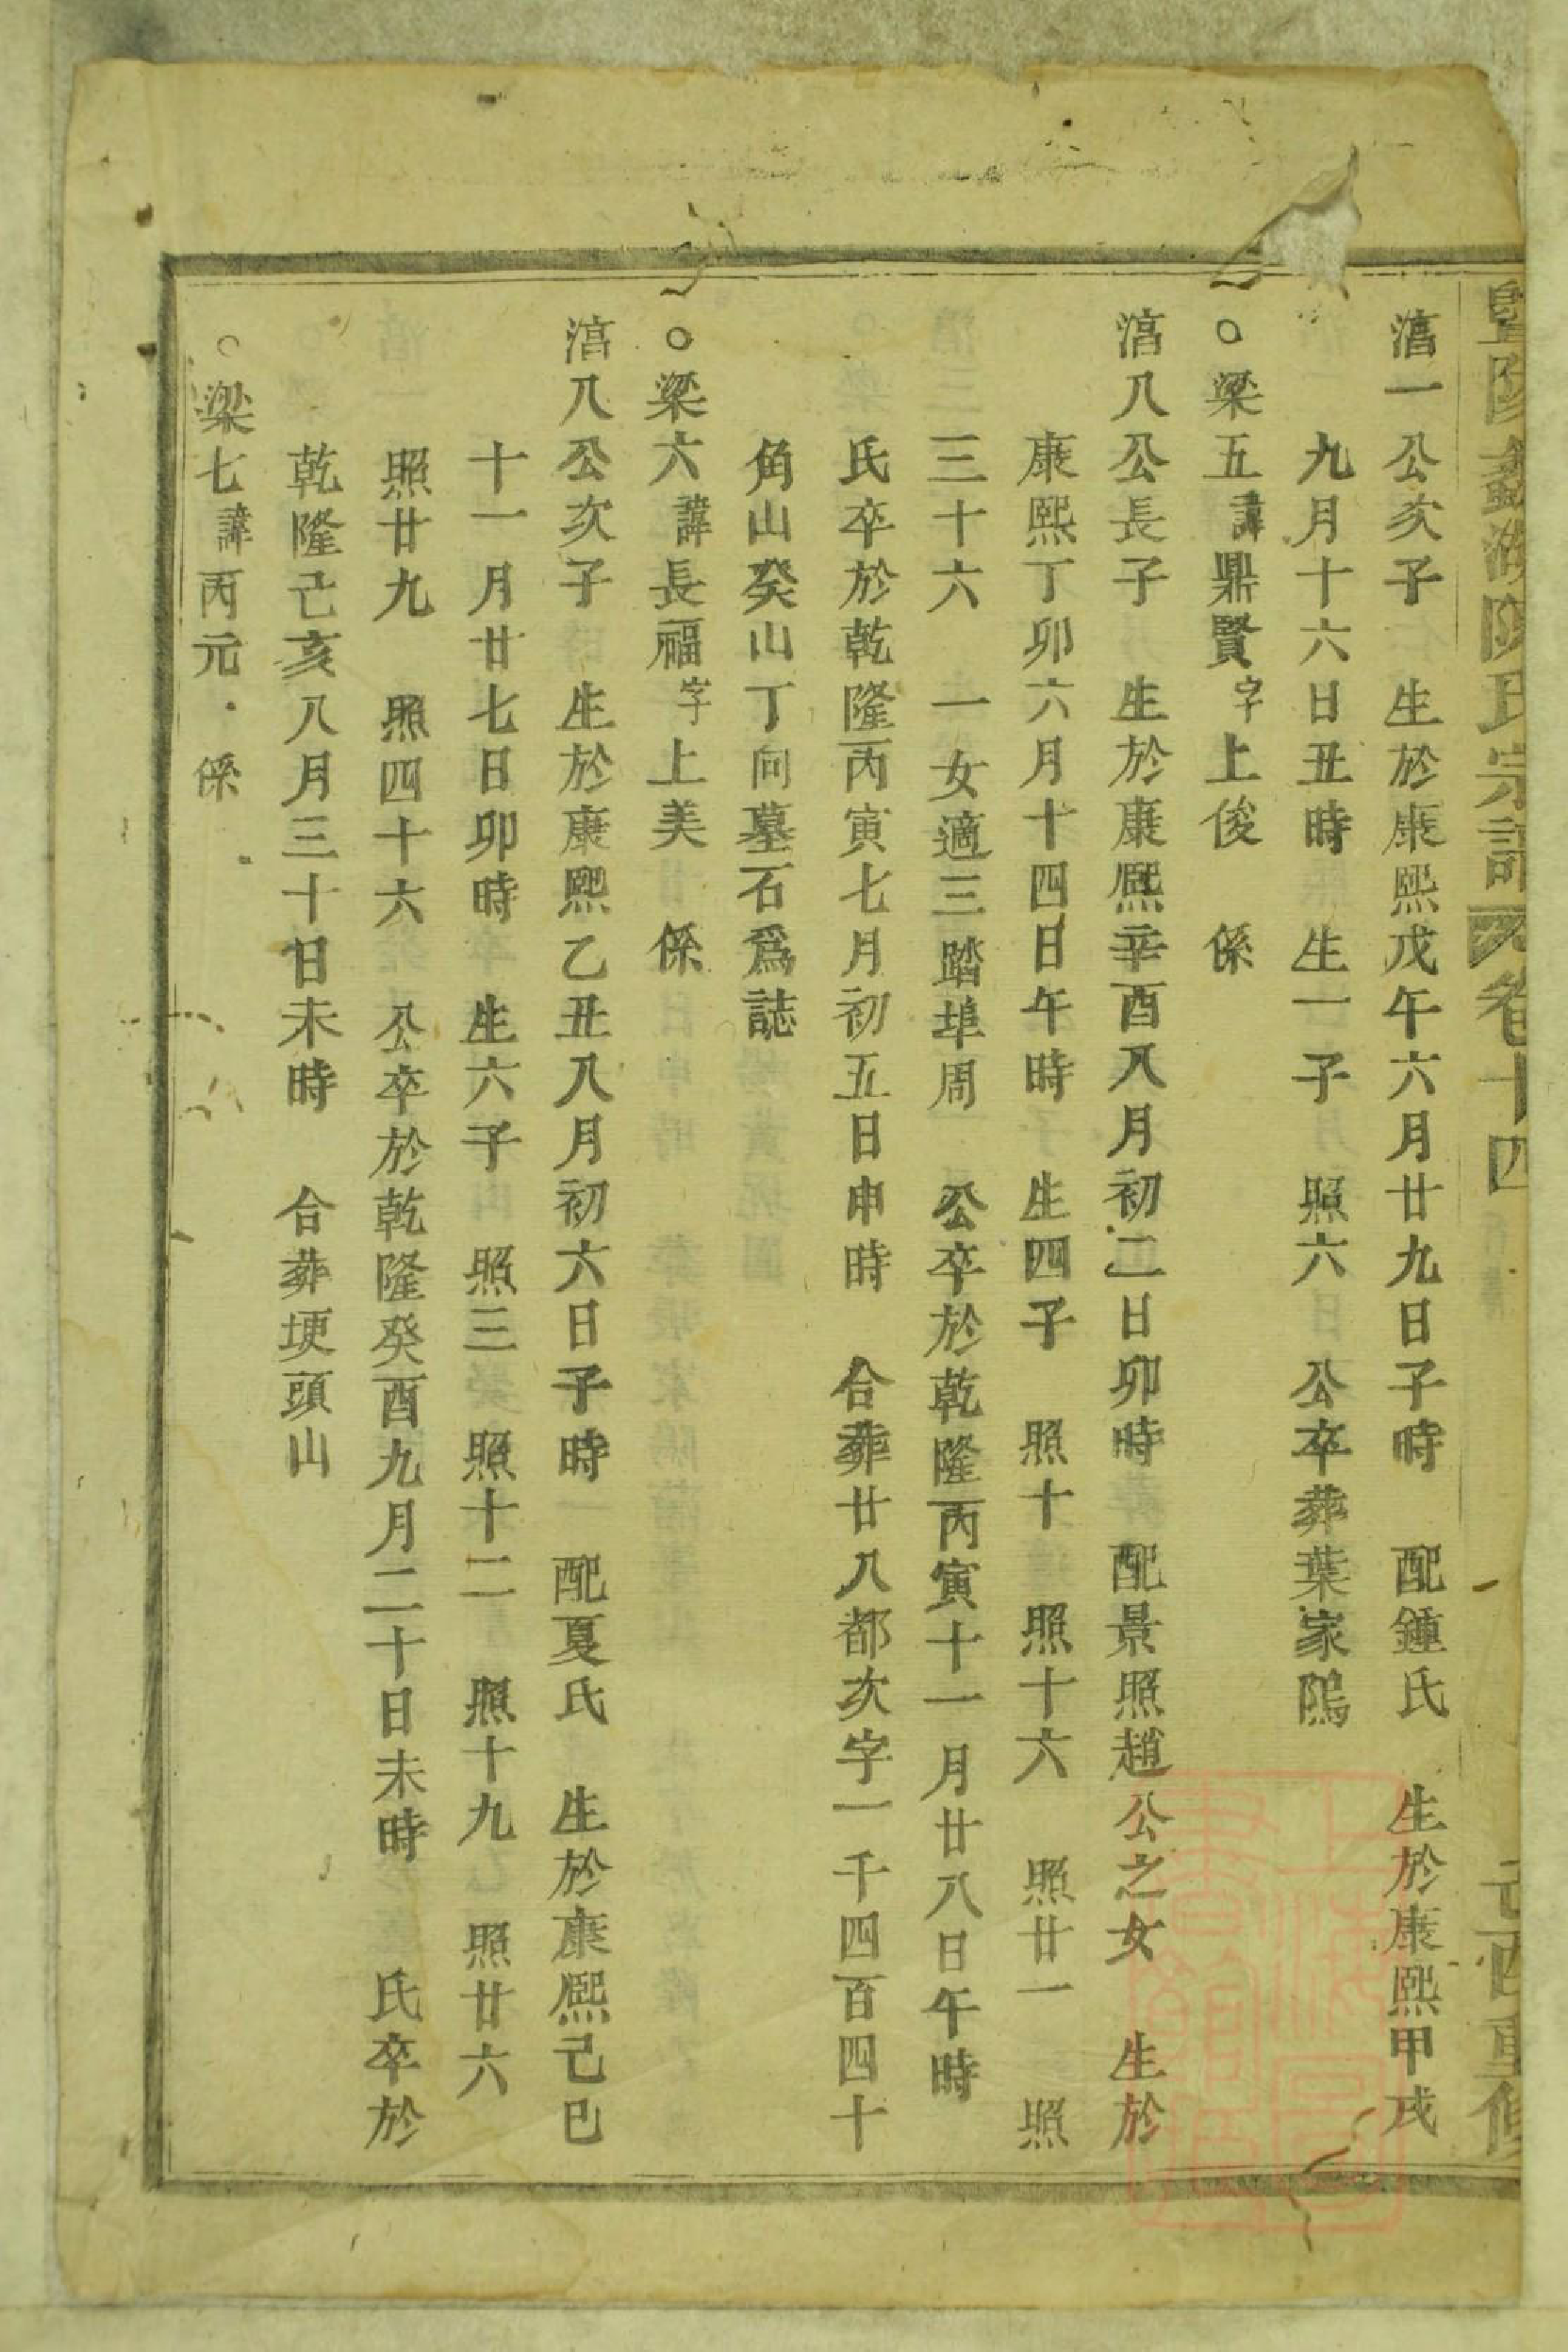 暨陽 湖陳氏宗譜 卷十四 己酉重修
湻一公次子 生於康熙戊午六月廿九日子時 配鍾氏 生於康熙甲戌
九月十六日丑時 生一子 照六 公卒葬葉家隖
○梁五諱鼎賢字上俊 係
湻八公長子 生於康熙辛酉八月初二日卯時 配景照趙公之女 生於
康熙丁卯六月十四日午時 生四子 照十 照十六 照廿一 照
三十六 一女適三踏埠周 公卒於乾隆丙寅十一月廿八日午時
氏卒於乾隆丙寅七月初五日申時 合葬廿八都次字一千四百四十
角山癸山丁向墓石爲誌
○梁六諱長福字上美 係
湻八公次子 生於康熙乙丑八月初六日子時 配夏氏 生於康熙己巳
十一月廿七日卯時 生六子 照三 照十二 照十九 照廿六
照廿九 照四十六 公卒於乾隆癸酉九月二十日未時 氏卒於
乾隆己亥八月三十日未時 合葬埂頭山
○梁七諱丙元 係